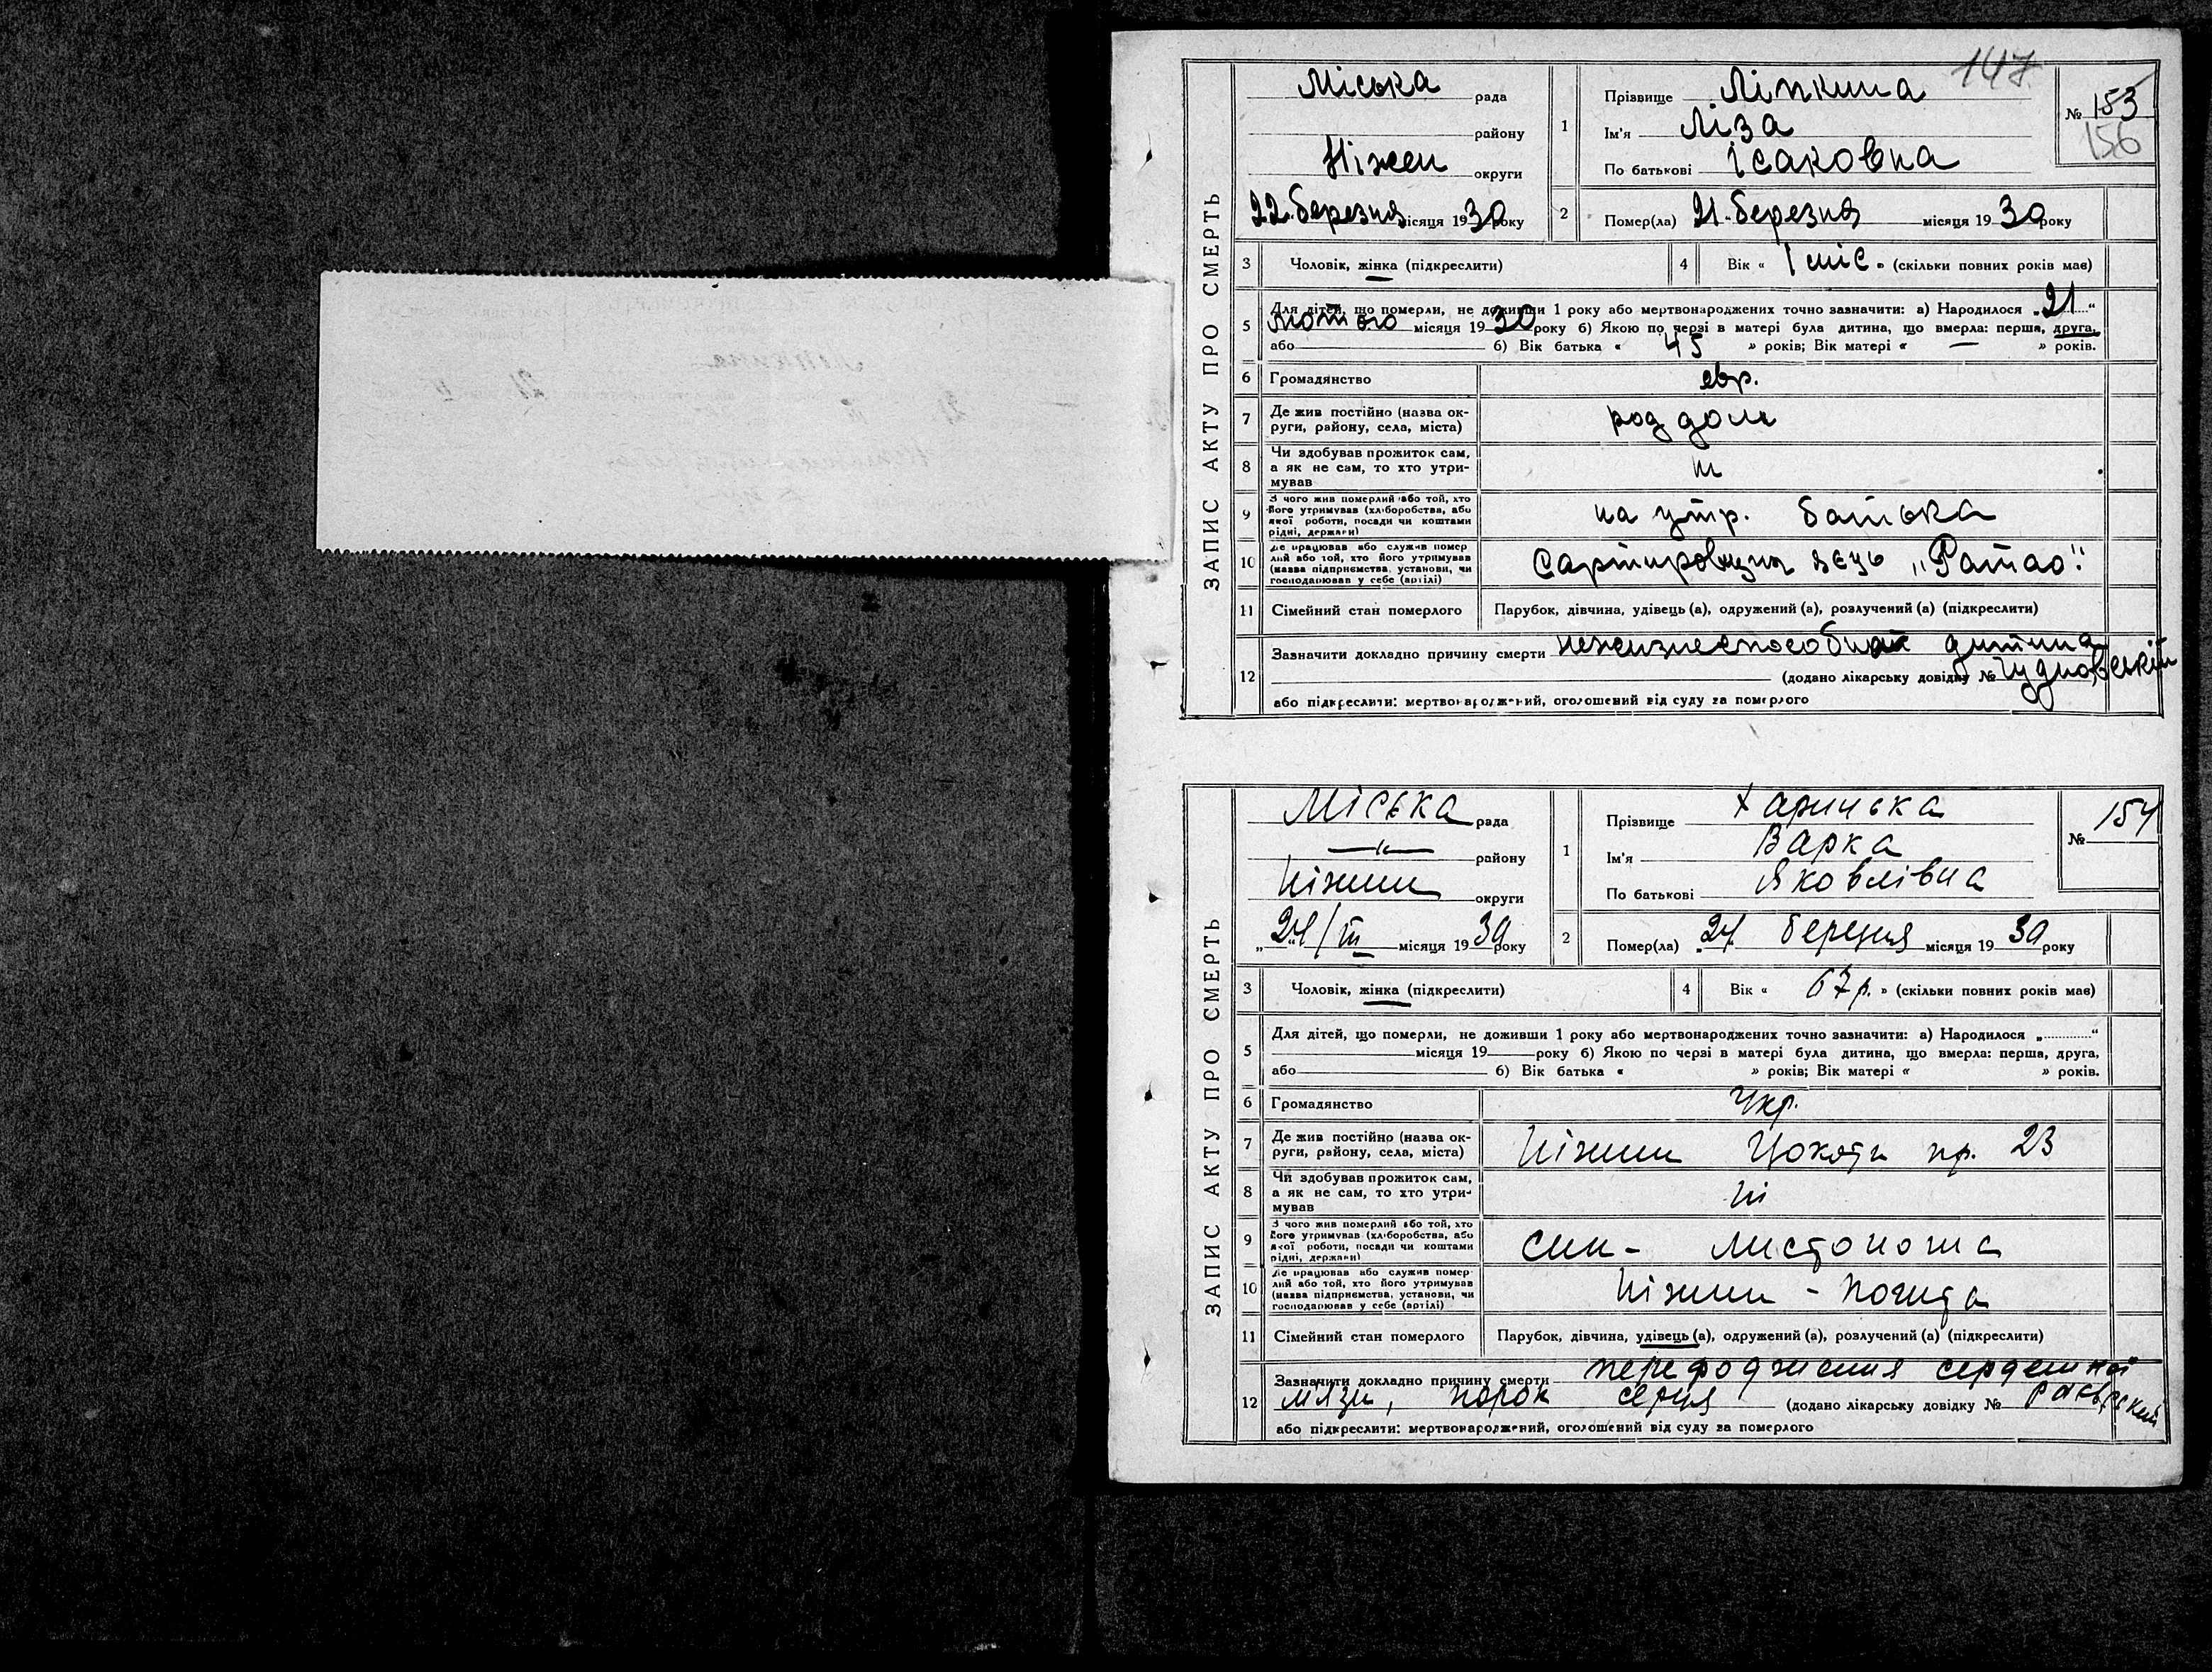 147
ЗАПИС АКТУ ПРО СМЕРТЬ
Міська рада
району
Ніжен округи
22 березня місяця 1930 року
1
Прізвище Ліпкина
Ім'я Ліза
По батькові Ісаковна
№ 153
156
2 Помер(ла) 21 березня місяця 1930 року
3 Чоловік, жінка (підкреслити)
4 Вік « 1 міс » (скільки повних років має)
5 Для дітей, що померли, не доживши 1 року або мертвонароджених точно зазначити: а) Народилося „21“
лютого місяця 1930 року б) Якою по черзі в матері була дитина, що вмерла: перша, друга,
або б) Вік батька « 45 » років; Вік матері « — » років.
6 Громадянство євр.
7 Де жив постійно (назва округи, району, села, міста) род дом
8 Чи здобував прожиток сам, а як не сам, то хто утримував ні
9 З чого жив померлий або той, хто його утримував (хліборобства, або якої роботи, посади чи коштами рідні, держави) на утр. батька
10 Де працював або служив померлий або той, хто його утримував (назва підприємства, установи, чи господарював у себе (артілі) яєць „Ратао“.
11 Сімейний стан померлого Парубок, дівчина, удівець (а), одружений (а), розлучений (а) (підкреслити)
12 Зазначити докладно причину смерти нежизнеспособная дитина
(додано лікарську довідку № Чудновській
або підкреслити: мертвонароджений, оголошений від суду за померлого
ЗАПИС АКТУ ПРО СМЕРТЬ
Міська рада
—"— району
Ніжин округи
„24/III місяця 1930 року
1
Прізвище Харицька
Ім'я Варка
По батькові Яковлівна
№ 154
2 Помер(ла) 24 березня місяця 1930 року
3 Чоловік, жінка (підкреслити)
4 Вік « 67 р. » (скільки повних років має)
5 Для дітей, що померли, не доживши 1 року або мертвонароджених точно зазначити: а) Народилося „ “
місяця 19 року б) Якою по черзі в матері була дитина, що вмерла: перша, друга,
або б) Вік батька « » років; Вік матері « » років.
6 Громадянство Укр.
7 Де жив постійно (назва округи, району, села, міста) Ніжин пр. 23
8 Чи здобував прожиток сам, а як не сам, то хто утримував ні
9 З чого жив померлий або той, хто його утримував (хліборобства, або якої роботи, посади чи коштами рідні, держави) син - листоноша
10 Де працював або служив померлий або той, хто його утримував (назва підприємства, установи, чи господарював у себе (артілі) Ніжин - почта
11 Сімейний стан померлого Парубок, дівчина, удівець (а), одружений (а), розлучений (а) (підкреслити)
12 Зазначити докладно причину смерти переродження сердешної
мязи, порок серця (додано лікарську довідку № Раєвський
або підкреслити: мертвонароджений, оголошений від суду за померлого